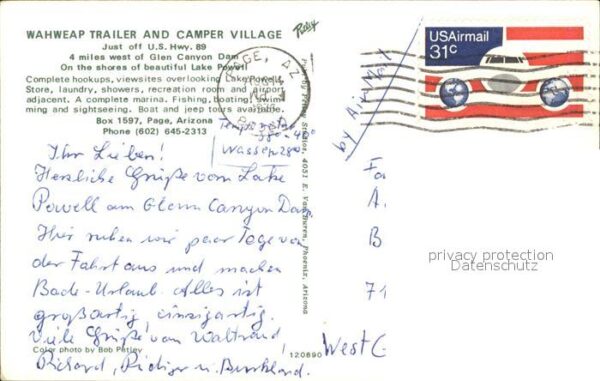 WAHWEAP TRAILER AND CAMPER VILLAGE
Just off U.S. Hwy. 89
4 miles west of Glen Canyon Dam
On the shores of beautiful Lake Powell
Complete hookups, viewsites overlooking Lake Powell.
Store, laundry, showers, recreation room and airport
adjacent. A complete marina. Fishing, boating, swim-
ming and sightseeing. Boat and jeep tours available.
Box 1597, Page, Arizona
Phone (602) 645-2313
Petley
PAGE, AZ
USAirmail
31c
by Air Mail
Temperatur
38°-40°
Wasser 28°
Ihr Lieben!
Herzliche Grüße vom Lake
Powell am Glenn Canyon Dam.
Hier ruhen wir paar Tage von
der Fahrt aus und machen
Bade-Urlaub. Alles ist
großartig, einzigartig.
Viele Grüße von Waltraud,
Richard, Rüdiger u. Burkhard.
Color photo by Bob Petley
120890
Petley Studios, 4051 E. Van Buren, Phoenix, Arizona
Fa
A.
B
71
West G
privacy protection
Datenschutz